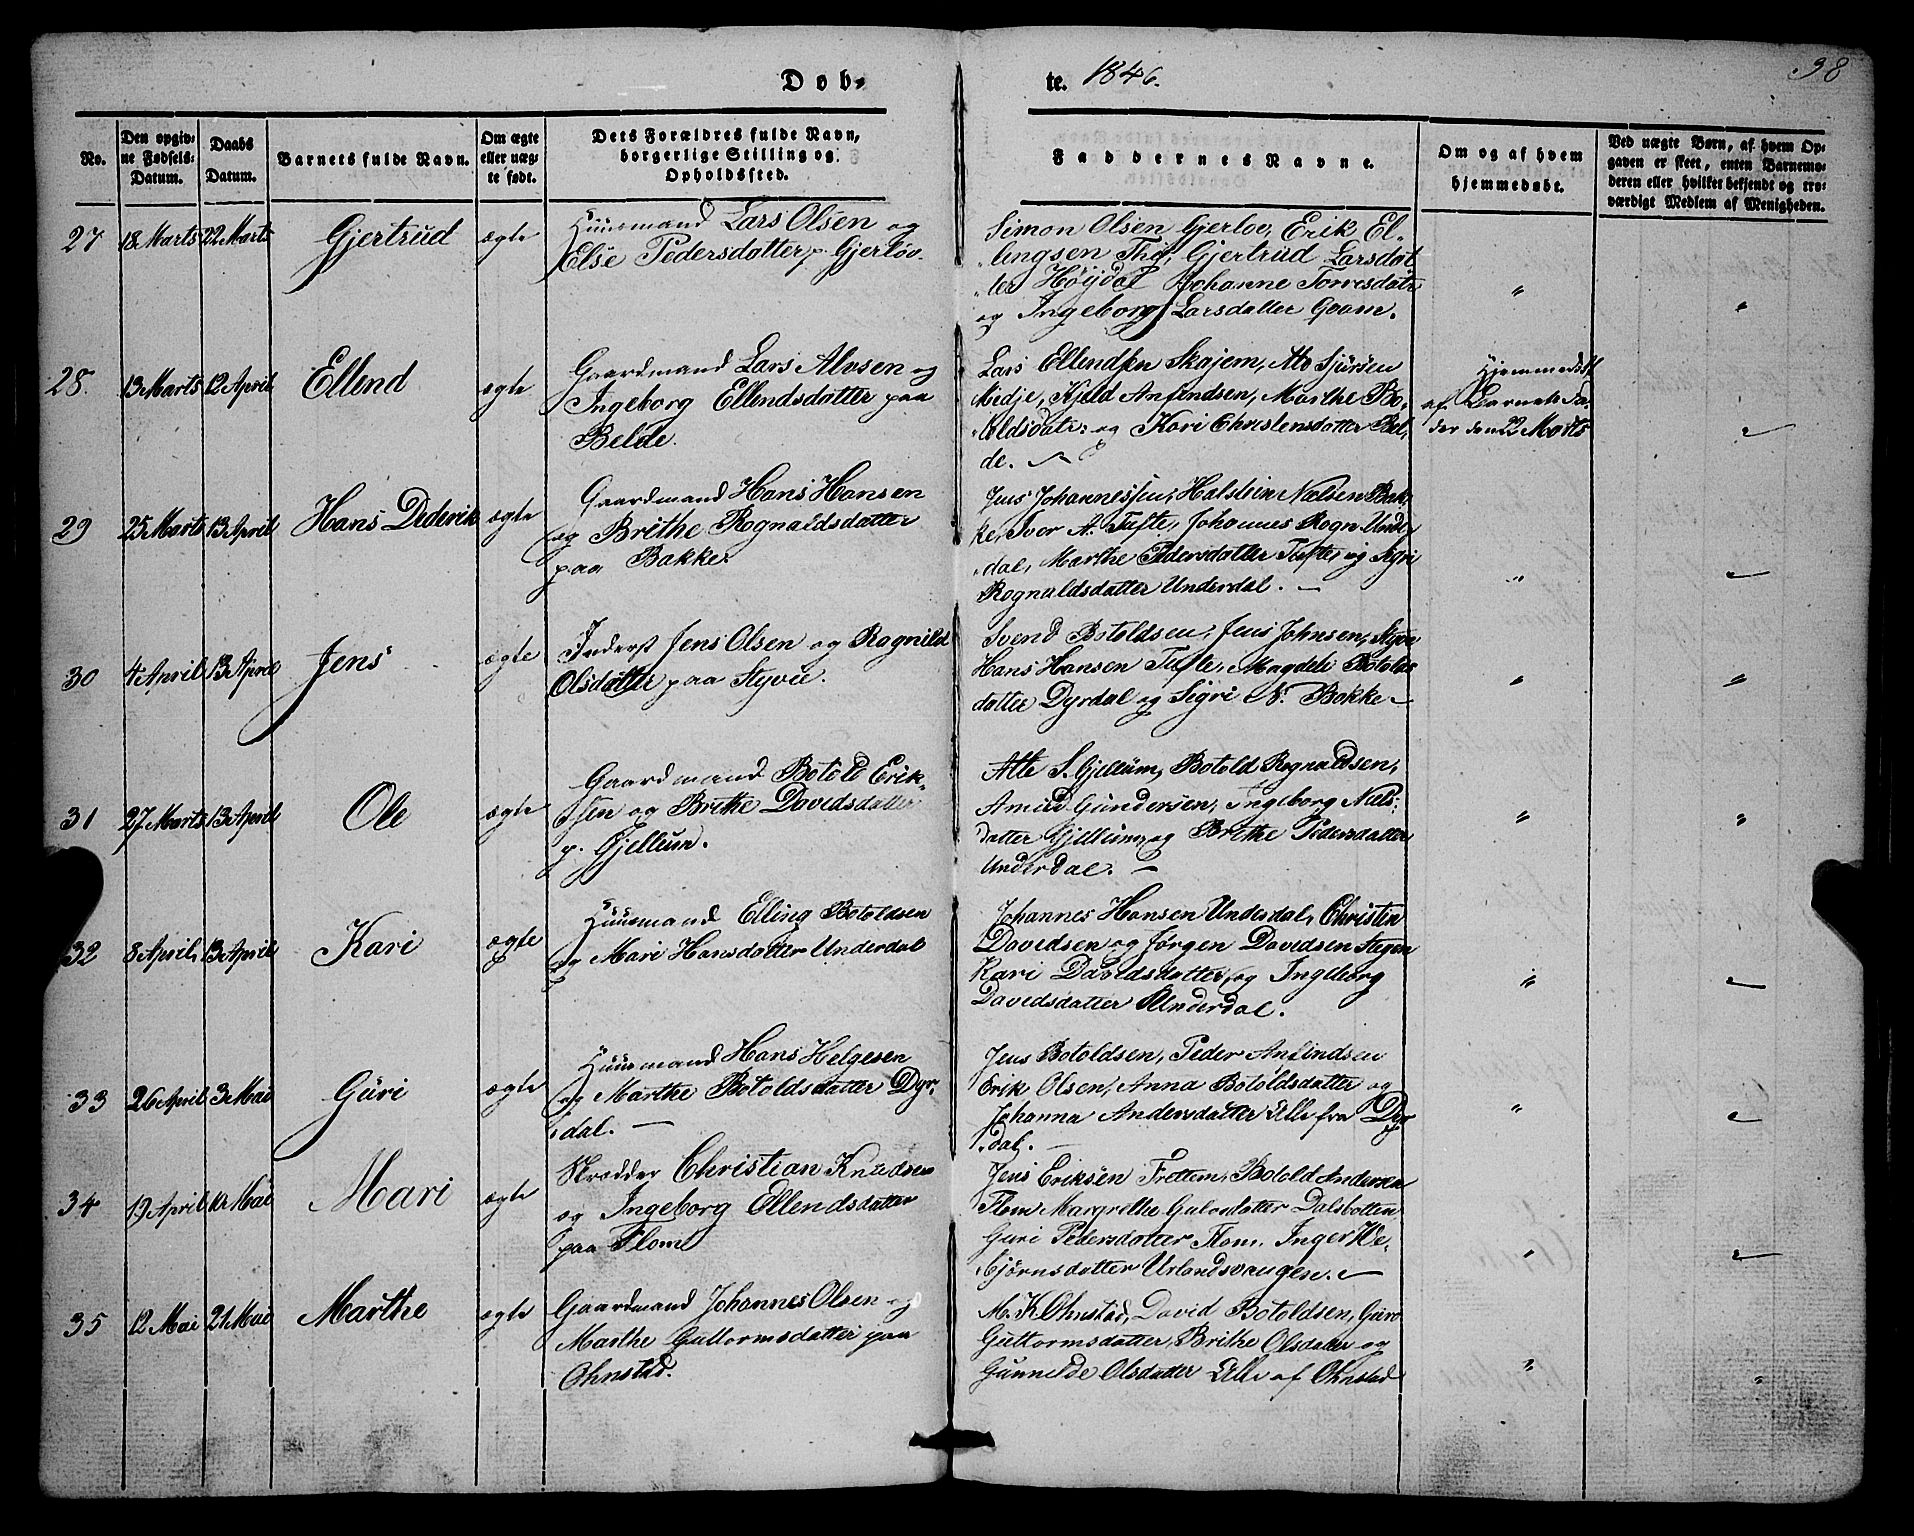 Døb-
te. 1846.
38
No.
Den opgiv-
ne Fødsels-
Datum.
Daabs
Datum.
Barnets fulde Navn.
Om ægte
eller uæg-
te født.
Dets Forældres fulde Navn,
borgerlige Stilling og
Opholdssted.
Faddernes Navne.
Om og af hvem
hjemmedøbt.
Ved uægte Børn, af hvem Op-
gaven er skeet, enten Barnemo-
deren eller hvilket bekjendt og tro-
værdigt Medlem af Menigheden.
27
18 Marts
22 Marts
Gjertrud
ægte
Huusmand Lars Olsen og
Else Pedersdatter p. Gjerløv.
Simon Olsen Gjerløe, Erik El-
lingsen Thø, Gjertrud Larsdat
ter Høydal Johanne Torresdatr
og Ingeborg Larsdatter
"
"
28.
13 Marts
12 April
Ellend
ægte
Gaardmand Lars Alvsen og
Ingeborg Ellendsdatter paa
Belde.
Lars Ellendsen Skajem, Atle Sjursen
Midje, Kjeld Anfindsen, Marthe Bo-
toldsdatr og Kari Christensdatter Bel-
de.
Hjemmedøbt
af Barnets Fa-
der den 22 Marts
29
25 Marts
13 April
Hans Dederik
ægte
Gaardmand Hans Hansen
og Brithe Rognaldsdatter
paa Bakke.
Jens Johannessen, Halstein Nielsen Bak-
ke, Iver A. Tufte, Johannes Rogn. Unde-
dal, Marthe Pedersdatter Tufte og Sigri
Rognaldsdatter Underdal.
"
30
4 April
13 April
Jens
ægte
Inderst Jens Olsen og Ragnild
Olsdatter paa Styvie.
Svend Botoldsen, Jens Johnsen, Styvie
Hans Hansen Tufte, Magdele Botolds
datter Dyrdal og Sigri N. Bakke
"
"
31
27 Marts
13 April
Ole
ægte
Gaardmand Botold Erik-
sen og Brithe Davidsdatter
p. Gjellum.
Atle S. Gjellum, Botold Rognaldsen,
Amund Gundersen, Ingeborg Niels-
datter Gjellum og Brithe Pedersdatter
Underdal.
"
"
32
8 April
13 April
Kari
ægte
Huusmand Elling Botoldsen
og Mari Hansdatter Underdal
Johannes Hansen Underdal, Christen
Davidsen og Jørgen Davidsen Stegen
Kari Davidsdatter og Ingeborg
Davidsdatter Underdal.
"
33
26 April
3 Mai
Guri
ægte
Huusmand Hans Helgesen
og Marthe Botoldsdatter Dyr-
dal.
Jens Botoldsen, Peder Anfindsen
Erik Olsen, Anna Botoldsdatter og
Johanna Andersdatter Alle fra Dyr
dal.
"
34
19 April
Mai
Mari
ægte
Skrædder Christian Knudsen
og Ingeborg Ellendsdatter
paa Flom
Jens Eriksen Frettem, Botold Andersen
Flom Margrethe Gulovdatter Dalsbotten,
Guri Pedersdatter Flom, Inger We-
bjørnsdatter Urlandsvangen.
"
35
12 Mai
21 Mai
Marthe
ægte
Gaardmand Johannes Olsen og
Marthe Guttormsdatter paa
Ohnstad.
M. K. Ohnstad, David Botoldsen, Guro
Guttormsdatter, Brithe Olsdatter og
Gunnilde Olsdatter Alle af Ohnstad
"
"